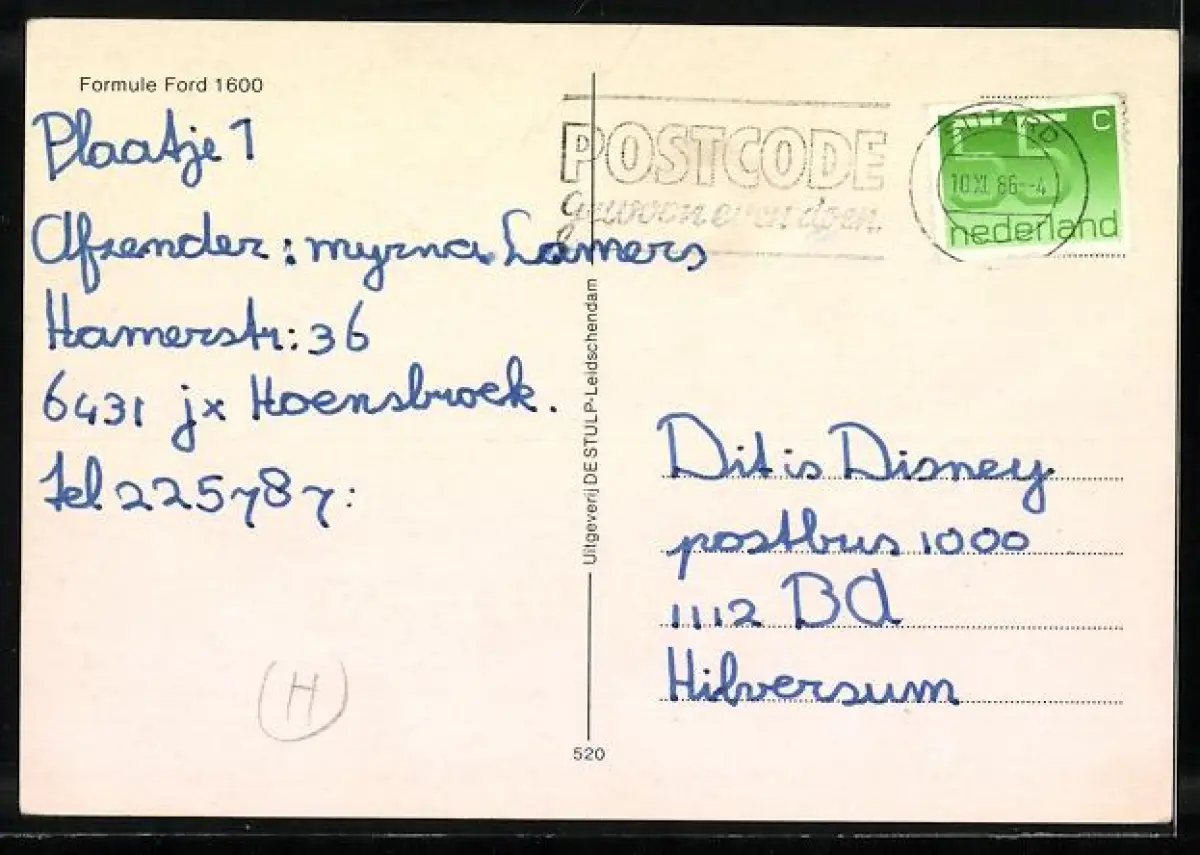 Formule Ford 1600
Plaatje 1
Afzender: myrna Lamers
Hamerstr: 36
6431 jx Hoensbroek.
tel 225787:
POSTCODE
gewoon even doen.
SITTARD
10 XI 86--4
55 C
nederland
Uitgeverij DE STULP-Leidschendam
Dit is Disney
postbus 1000
1112 BA
Hilversum
520
H